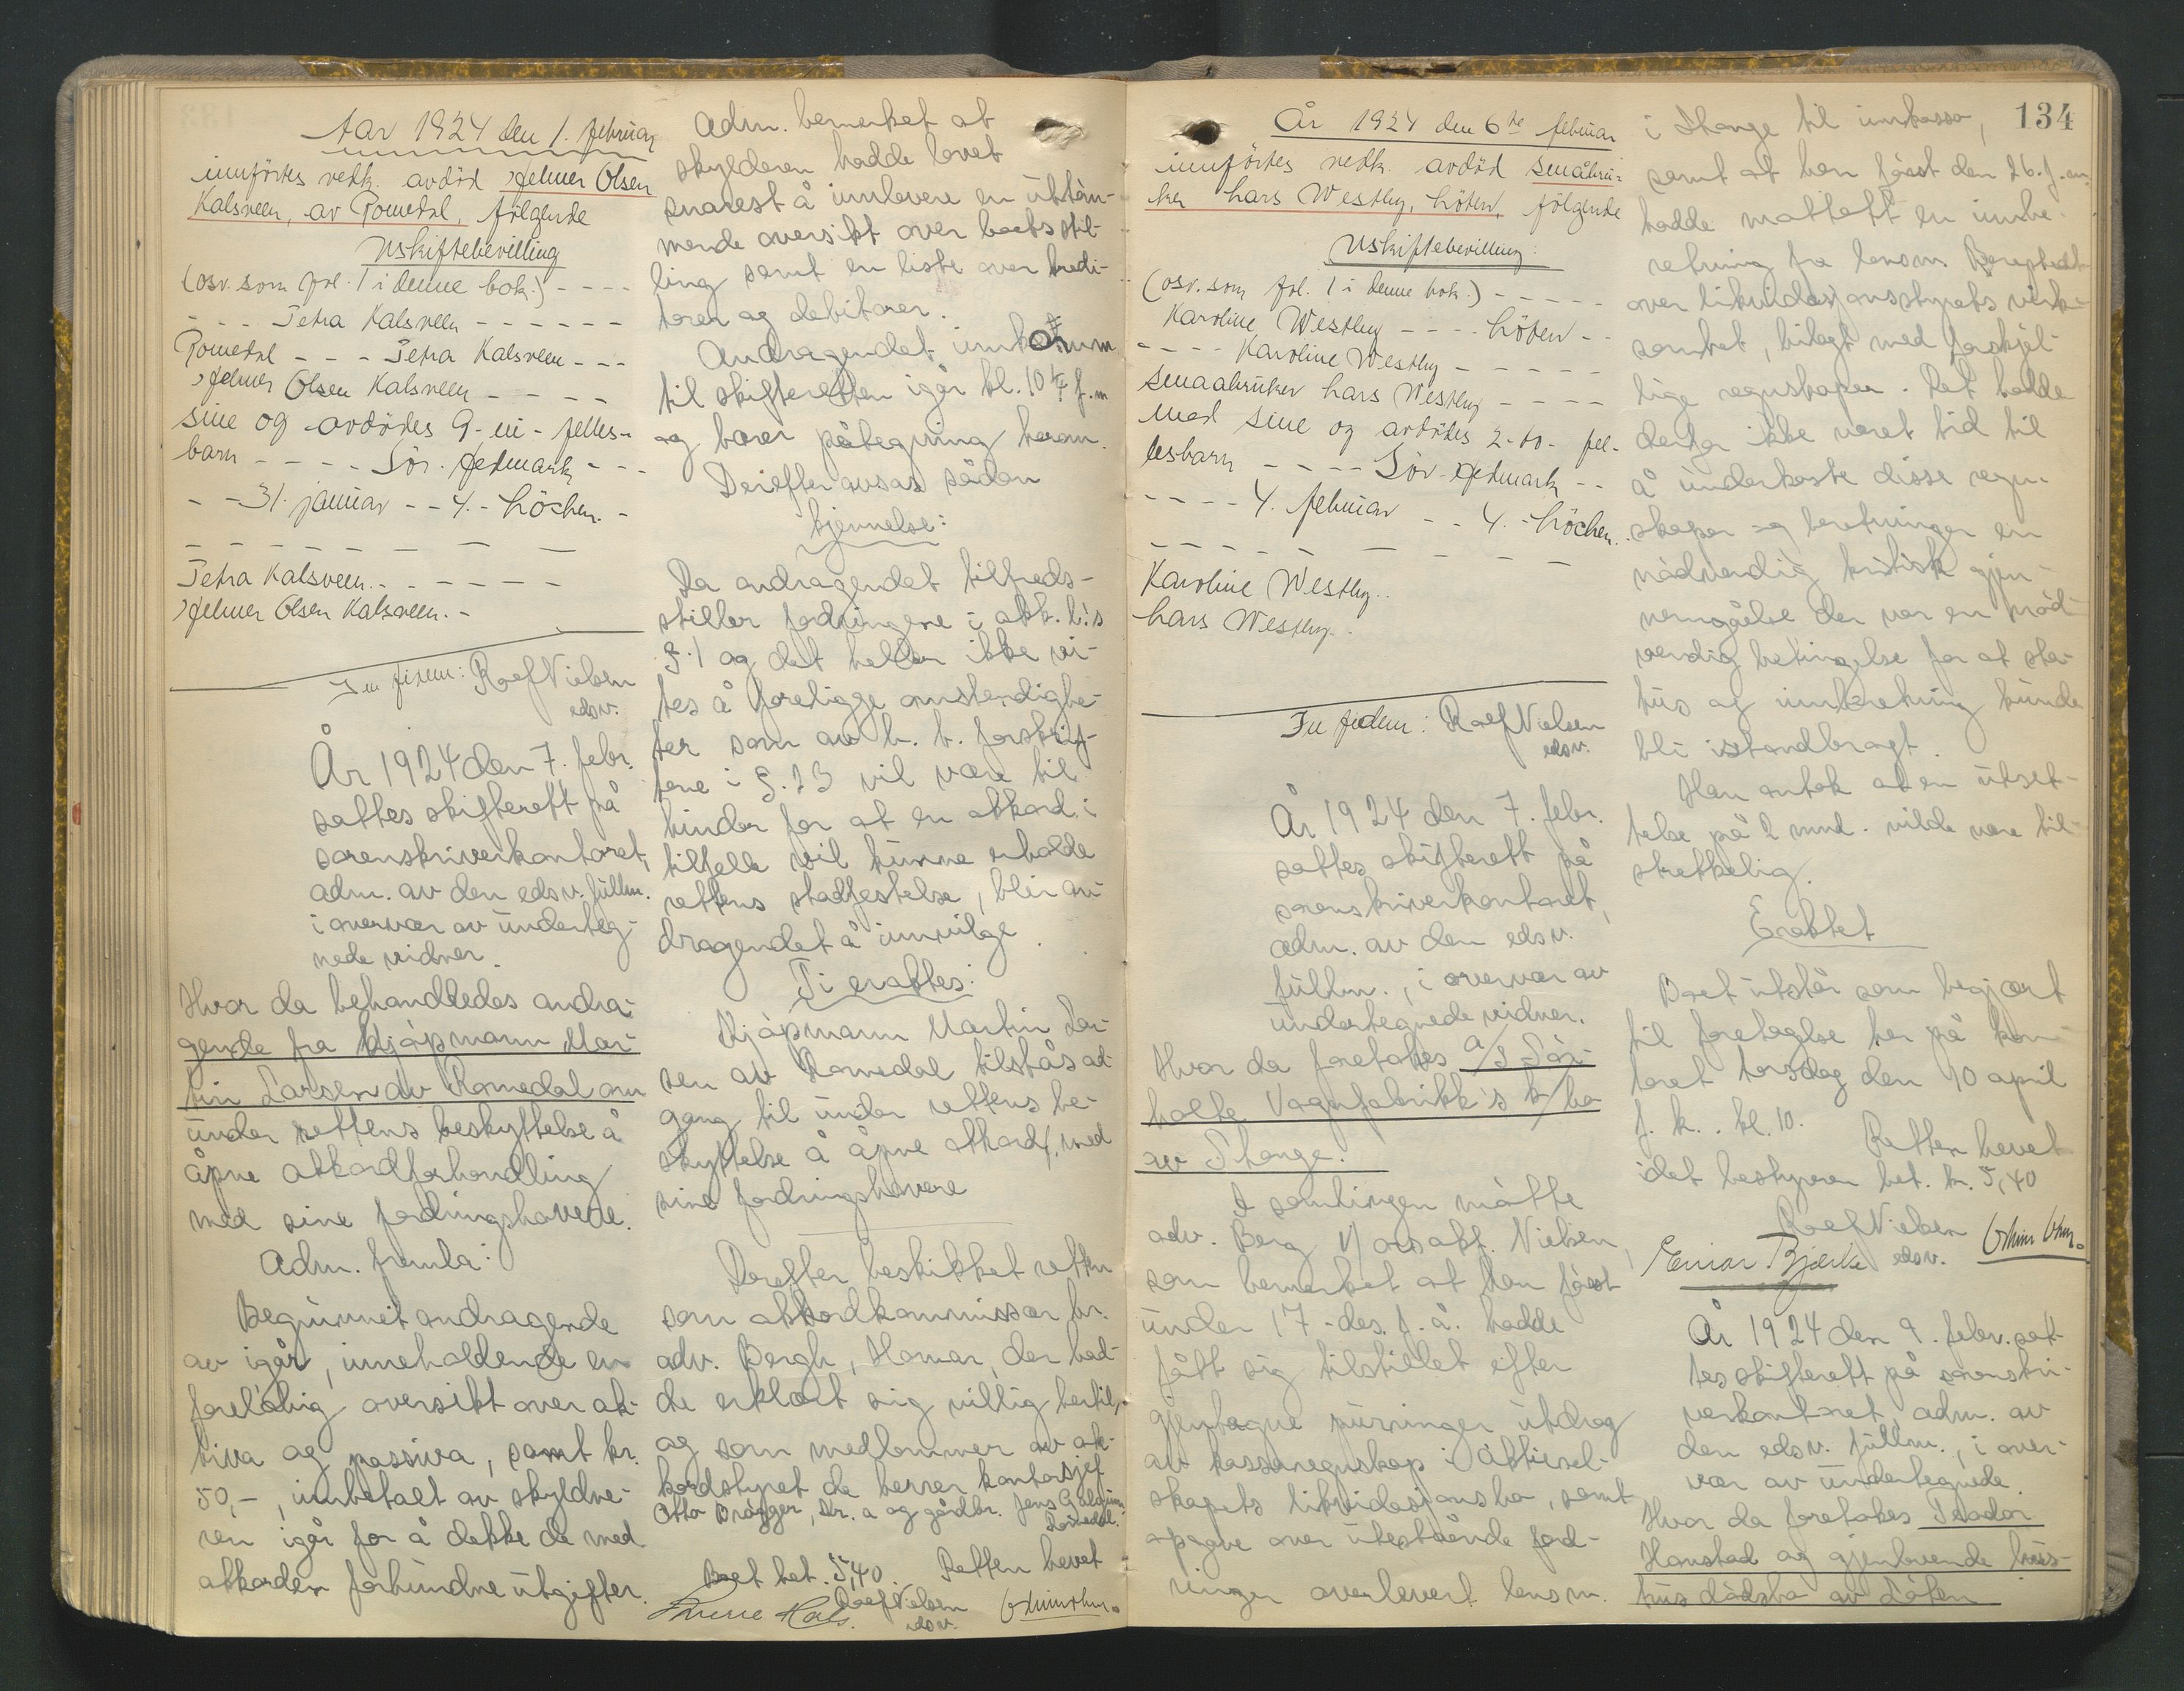 Aar 1924 den 1. februar
innførtes vedk. avdöd Helmer Olsen
Kalsveen, av Romedal, fölgende
Uskiftebevilling
(osv. som fol. 1 i denne bok.) - - - -
- - - Petra Kalsveen - - - - - -
Romedal - - - Petra Kalsveen - - -
Helmer Olsen Kalsveen - - - -
sine og avdödes 9 - ni - felles-
barn - - - - Sör-Hedmark - - -
- - 31. januar - - 4. - Löchen. -
- - - - - - - -
Petra Kalsveen. - - - - - -
Helmer Olsen Kalsveen. -
In fidem: Roef Nielsen
edsv.
År 1924 den 7. febr.
sattes skifterett på
sorenskriverkontoret,
adm. av den edsv. fullm.
i overvær av underteg-
nede vidner.
Hvor da behandledes andra-
gende fra kjøpmann Mar-
tin Larsen av Romedal om
under rettens beskyttelse å
åpne akkordforhandling
med sine fordringshavere.
Adm. fremla:
Begrunnet andragende
av igår, inneholdende en
foreløbig oversikt over ak-
tiva og passiva, samt kr.
50,-, innbetalt av skyldne-
ren igår for å dekke de med
akkorden forbundne utgifter.
Adm. bemerket at
skylderen hadde lovet
snarest å innlevere en uttøm-
mende oversikt over boets stil-
ling samt en liste over kredi-
torer og debitorer.
Andragendet innkom
til skifteretten igår kl. 10 1/4 f.m
og bærer påtegning herom.
Derefter avsas sådan
kjennelse:
Da andragendet tilfreds-
stiller fordringene i akk. l.'s
§. 1 og det heller ikke vi-
tes å foreligge omstendighe-
ter som av h. t. forskrif-
tene i §. 23 vil være til
hinder for at en akkord i
tilfelle vil kunne erholde
rettens stadfestelse, blir an-
dragendet å innvilge.
Ti eraktes:
Kjøpmann Martin Lar-
sen av Romedal tilståes ad-
gang til under rettens be-
skyttelse å åpne akkordf. med
sine fordringshavere
Derefter beskikket retten
som akkordkommissær hr.
adv. Bergh, Hamar, der had-
de erklært sig villig hertil,
og som medlemmer av ak-
kordstyret de herrer kontorsjef
Otto Dröyer, Hr. a og gårdbr. Jens
Romedal.
Boet bet. 5,40. Retten hevet
Roef Nielsen
edsv.
År 1924 den 6te februar
innförtes vedk. avdöd småbru-
ker Lars Westby, Löten, fölgende
Uskiftebevilling:
(osv. som fol. 1 i denne bok.) - - - - -
Karoline Westby - - - - Löten - -
- - - - Karoline Westby - - - - -
Smaabruker Lars Westby - - - -
med sine og avdödes 2 - to - fel-
lesbarn - - - - Sör-Hedmark - -
- - - - 4. februar - - 4. - Löchen.
- - - - - - - -
Karoline Westby..
Lars Westby..
In fidem: Roef Nielsen
edsv.
År 1924 den 7. febr.
sattes skifterett på
sorenskriverkontoret,
adm. av den edsv.
fullm., i overvær av
undertegnede vidner.
Hvor da foretokes a/s Sör-
holte Vognfabrikk's k/bo
av Stange.
I samlingen møtte
adv. Berg v/ ass. akf. Nielsen,
som bemerket at han först
under 17 - des. f. å. hadde
fått sig tilstillet efter
gjentagne purringer utdrag
av kasseregnskap i aktiesel-
skapets likvidasjonsbo, samt
opgave over utestående ford-
ringer overlevert lensm.
134
i Stange til innkasso,
samt at han först den 26. f. m.
hadde mottatt en innbe-
retning fra lensm.
over likvidasjonsstyrets virk-
somhet, bilagt med forskjel-
lige regnskaper. Det hadde
derfor ikke været tid til
å underkaste disse regn-
skaper og beretninger en
nødvendig kritisk gjen-
nemgåelse der var en nød-
vendig betingelse for at sta-
tus og innberetning kunde
bli istandbragt.
Han antok at en utset-
telse på 2 mnd. vilde være til-
strekkelig.
Eraktet
Boet utstår som begjært
til foretagelse her på kon-
toret torsdag den 10 april
f. k. kl. 10.
Retten hevet
idet bestyreren bet. kr. 5,40
Roef Nielsen
edsv.
Einar Bjerke
År 1924 den 9. febr. sat-
tes skifterett på sorenskri-
verkontoret, adm. av
den edsv. fullm., i over-
vær av undertegnede.
Hvor da foretokes Teodor
Hanstad og gjenlevende hus-
trus dødsbo av Løten